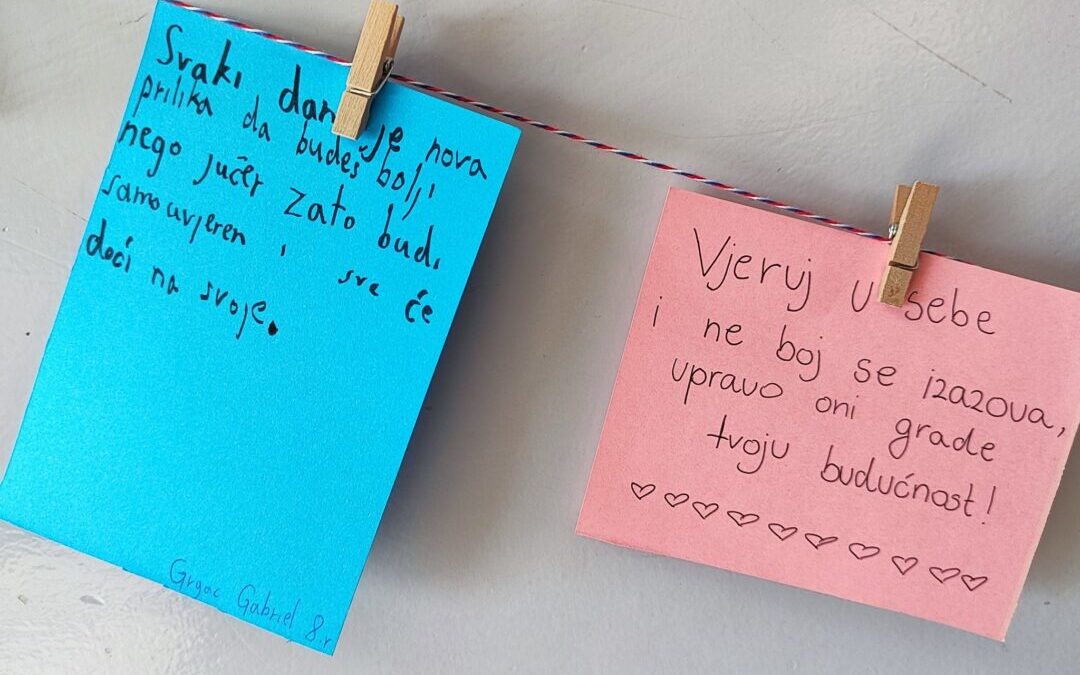 Svaki dan je nova
prilika da budeš bolji
nego jučer zato budi
samouvjeren i sve će
doći na svoje.
Grgac Gabriel 8.r
Vjeruj u sebe
i ne boj se izazova,
upravo oni grade
tvoju budućnost!